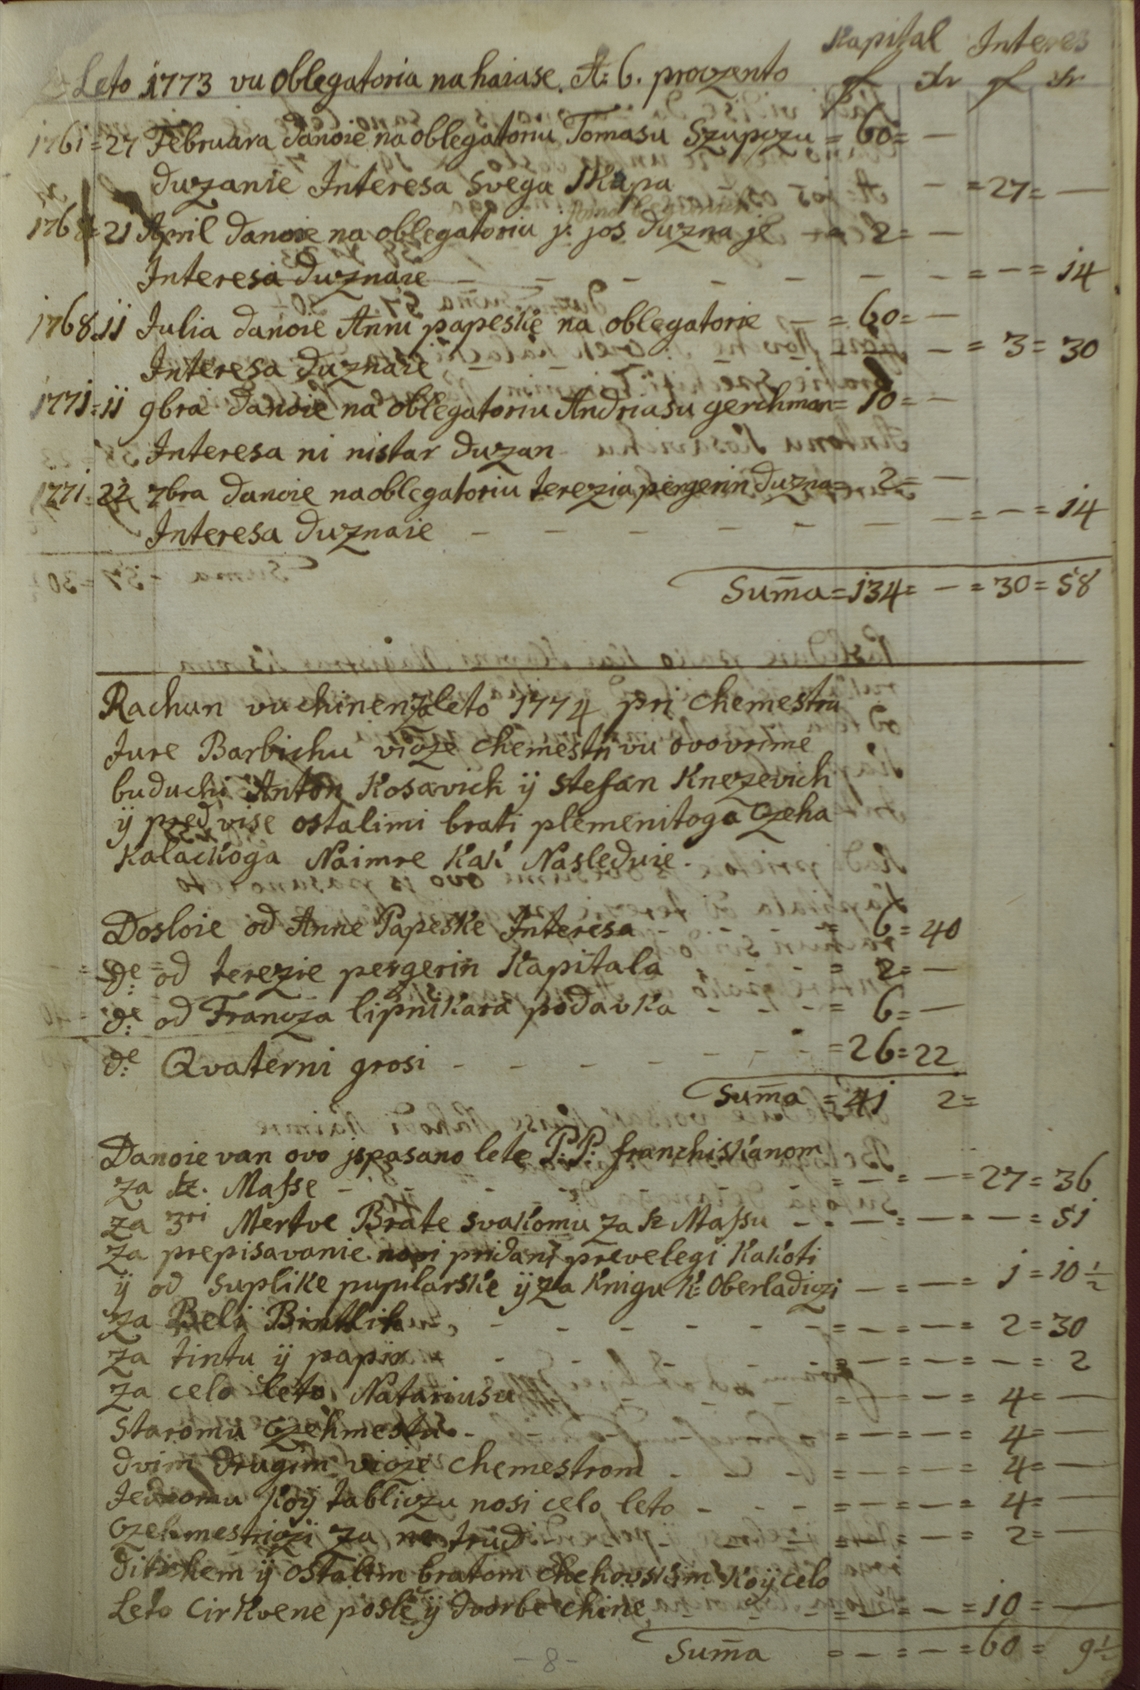 Kapital Interes
Leto 1773 vu Oblegatoria na haiase. A: 6. proczento f xr f xr
1761=27 Februara danoie na oblegatoriu Tomasu Szupczu = 60= —
duzanie Interesa svega Skupa — =27= —
1768=21 April danoie na oblegatoriu j: jos duzna je = 2= —
Interesa duznaie — — — — — — = — = 14
1768.11 Iulia danoie Anni papeske na oblegatorie — = 60= —
Interesa duznaie — = 3= 30
1771=11 9bra danoie na oblegatoriu Andriasu gerchman= 10= —
Interesa ni nistar duzan
1771=22 7bra danoie na oblegatoriu terezia pergerin duzna= 2= —
Interesa duznaie — — — — — — = — = 14
Sum̄a=134= — =30=58
Rachun vuchinen zleto 1774 pri chemestru
Jure Barbichu vicze chemestri vu ovovrime
buduchi Anton Kosavich ÿ Stefan Knezevich
ÿ pred vise ostalimi brati plemenitoga Czeha
Kalackoga Naimre Kak Nasleduie.
Dosloie od Anne Papeske Interesa = 6= 40
de: od terezie pergerin Kapitala - - = 2= —
de: od Francza lipnikara podavka - - - = 6= —
de: Qvaterni grosi - - - - - - =26=22
Sum̄a =41 2=
Danoie van ovo jspasano lete P: P: franchiskanom
za sz. Masse - - - - = - = — =27=36
za 3ri Mertve Brate svakomu za sz Massu - - — = — = — =51
za prepisavanie novi pridani prevelegi kakoti
ÿ od suplike pupularske ÿ za knigu k: Oberladiczi — = — = 1=10½
za Beli - - - - - - =—=—= 2=30
za tintu ÿ papir - - - - =—=—=—= 2
za celo leto Natariusu - - - =—=—= 4= —
Staromu Czehmestru - =—=—= 4= —
dvim drugim vicze chemestrom - - - =—=—= 4= —
Jednomu koÿ tabliczu nosi celo leto - - - =—=—= 4= —
Czehmestriczi za ne trud =—=—= 2= —
ditichem ÿ ostalim bratom chehovskim koÿ celo
Leto Cirkvene posle ÿ dvorbe chine - =—=—=10= —
Sum̄a =—=—=60= 9½
-8-